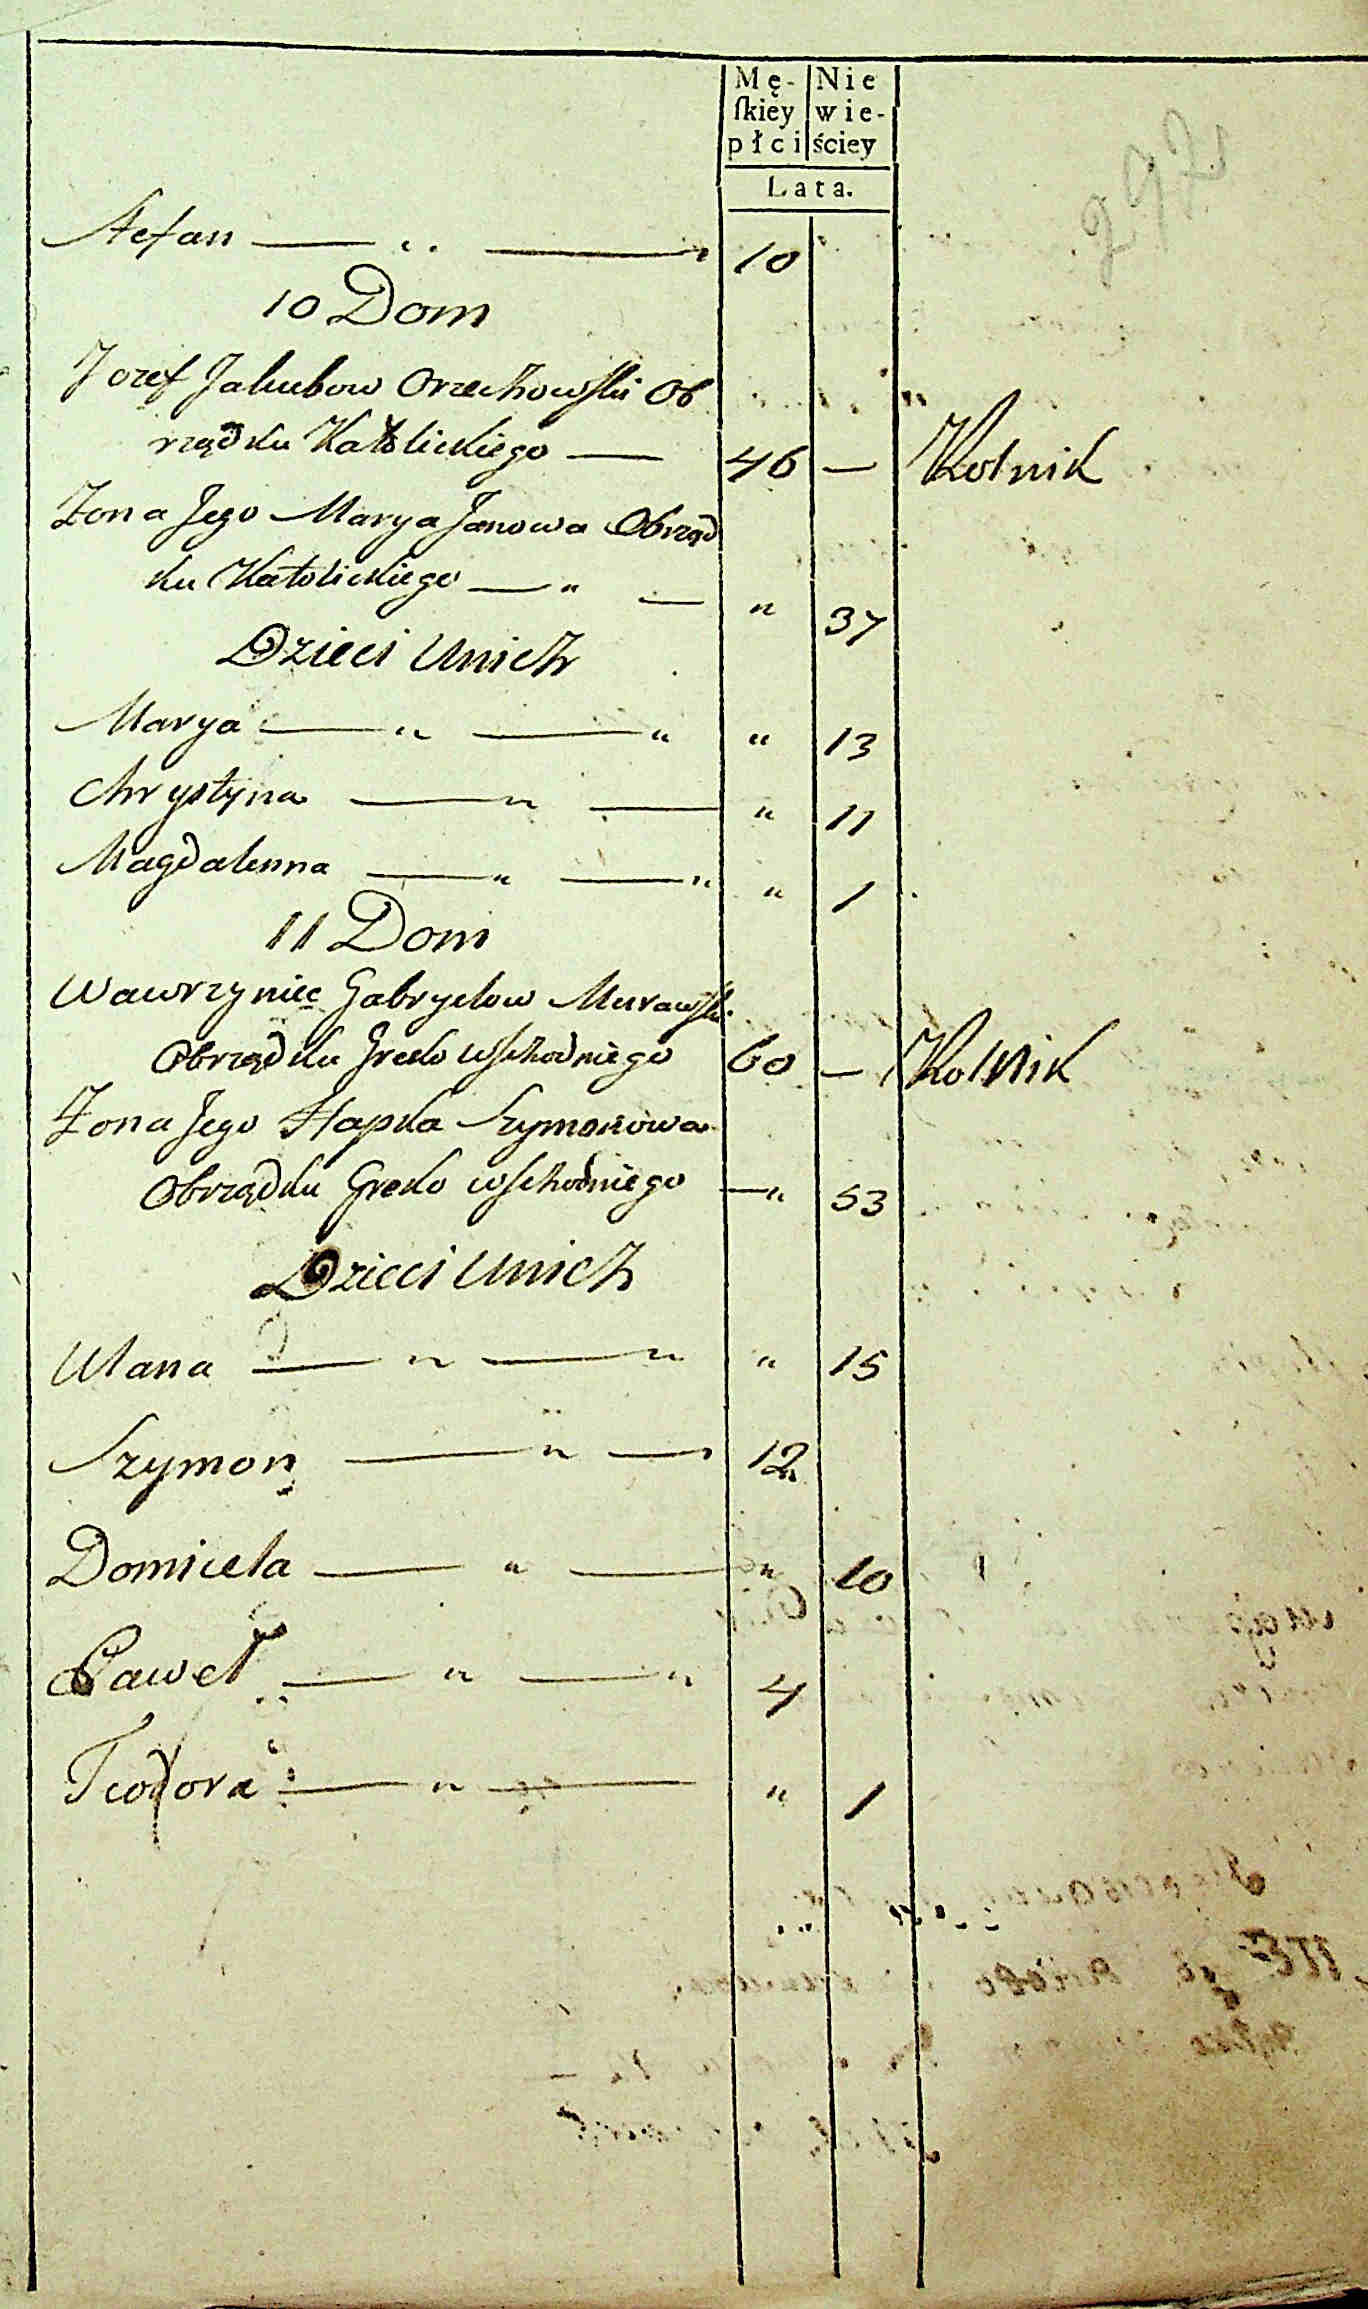 Mę- Nie
ſkiey wie-
płci ściey
Lata.
292
Stefan — „ — 10
10 Dom
Jozef Jakubow Orzechowski Ob
rządku Katolickiego — 46 — Rolnik
Żona Jego Marya Janowa Obrząd
ku Katolickiego — „ — „ 37
Dzieci Unich
Marya — „ — „ „ 13
Chrystyna — „ — „ 11
Magdalenna — „ — „ „ 1
11 Dom
Wawrzyniec Gabryelow Murawski
Obrządku Greko wschodniego 60 — Rolnik
Żona Jego Hapka Szymonowa
Obrządku Greko wschodniego — „ 53
Dzieci Unich
Ulana — „ — „ „ 15
Szymon — „ — 12
Domicela — „ — „ 10
Paweł — „ — „ 4
Teodora — „ — „ 1